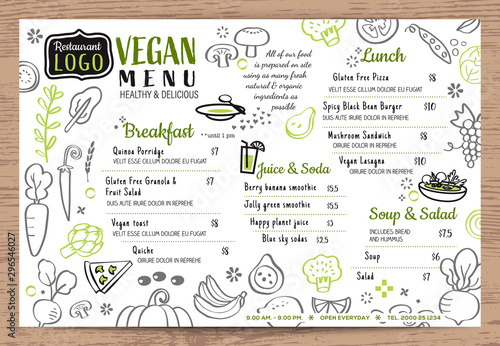 Restaurant
LOGO
VEGAN
MENU
HEALTHY & DELICIOUS
All of our food
is prepared on site
using as many fresh
natural & organic
ingredients as
possible
Breakfast
**until 1 pm
Quinoa Porridge $7
VELIT ESSE CILLUM DOLORE EU FUGIAT
Gluten Free Granola & $7
Fruit Salad
DUIS AUTE IRURE
DOLOR IN REPREHE
Vegan toast $8
VELIT ESSE CILLUM DOLORE EU FUGIAT
Quiche $8
IRURE DOLOR IN REPREHE
Juice & Soda
Berry banana smoothie $5.5
Jolly green smoothie $5.5
Happy planet juice $3
Blue sky sodas $2.5
Lunch
Gluten Free Pizza $8
VELIT ESSE CILLUM DOLORE EU FUGIAT
Spicy Black Bean Burger $10
DUIS AUTE IRURE DOLOR IN REPREHE
Mushroom Sandwich $8
IRURE DOLOR IN REPREHE
Vegan Lasagna $10
VELIT ESSE CILLUM
DOLORE EU FUGIAT
Soup & Salad
INCLUDES BREAD $7.5
AND HUMMUS
Soup $6
Salad $7
9.00 AM. - 9.00 PM. * OPEN EVERYDAY * TEL. 2000 25 1234
Adobe Stock | #296546027